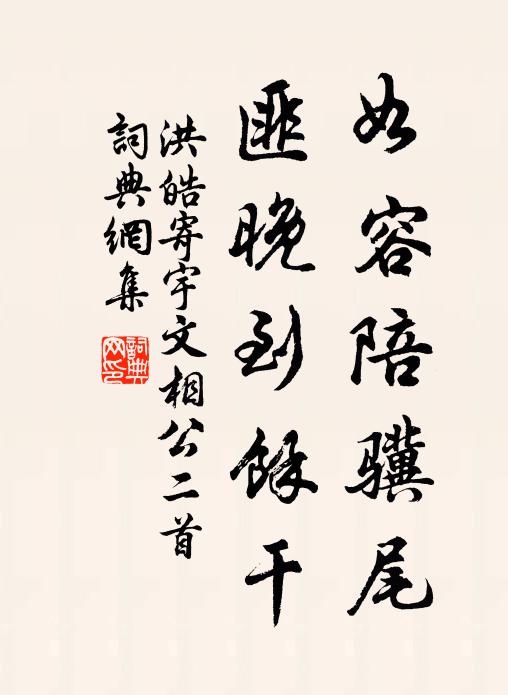 如容陪骥尾
匪晚到餘干
洪皓寄宇文相公二首
詞典網集
詞典網印